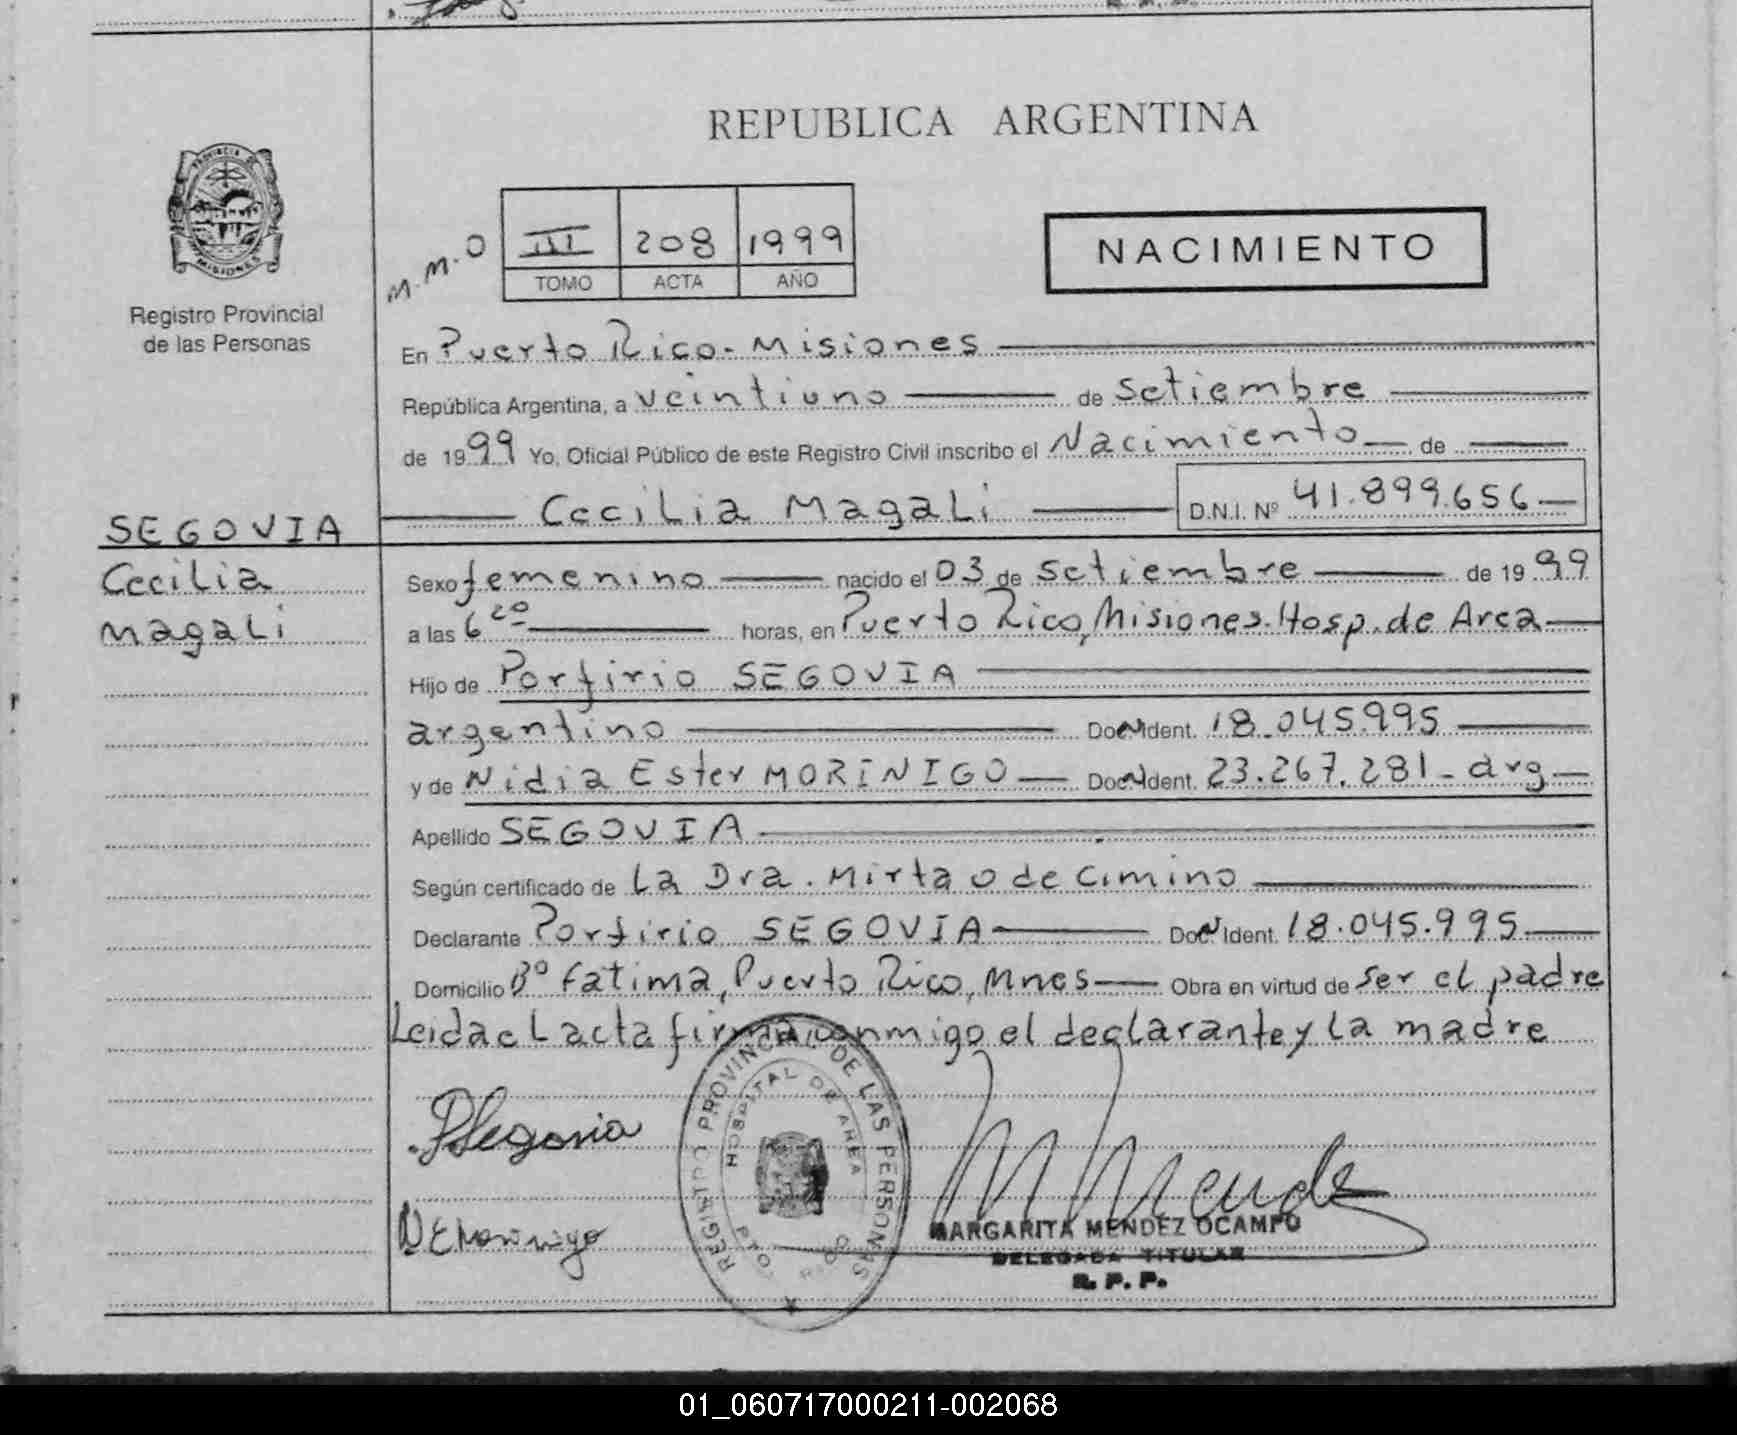 REPUBLICA ARGENTINA
PROVINCIA DE
MISIONES
Registro Provincial
de las Personas
M.M.O
III 208 1999
TOMO ACTA AÑO
NACIMIENTO
En Puerto Rico. Misiones
República Argentina, a veintiuno de Setiembre
de 1999 Yo, Oficial Público de este Registro Civil inscribo el Nacimiento de
Cecilia Magali D.N.I. Nº 41.899.656
SEGOVIA
Cecilia
Magali
Sexo femenino nacido el 03 de Setiembre de 1999
a las 6 20 horas, en Puerto Rico, Misiones. Hosp. de Area
Hijo de Porfirio SEGOVIA
argentino Doc. Ident. 18.045.995
y de Nidia Ester MORINIGO Doc. Ident. 23.267.281 - arg
Apellido SEGOVIA
Según certificado de La Dra. Mirta O de Cimino
Declarante Porfirio SEGOVIA Doc. Ident. 18.045.995
Domicilio Bº Fatima, Puerto Rico, Mnes Obra en virtud de ser el padre
Leida el acta firma conmigo el declarante y la madre
PSegovia
REGISTRO PROVINCIAL DE LAS PERSONAS
HOSPITAL DE AREA
PTO RICO
M Mendez
NEMorinigo
MARGARITA MENDEZ OCAMPO
DELEGADA TITULAR
R. P. P.
01_060717000211-002068